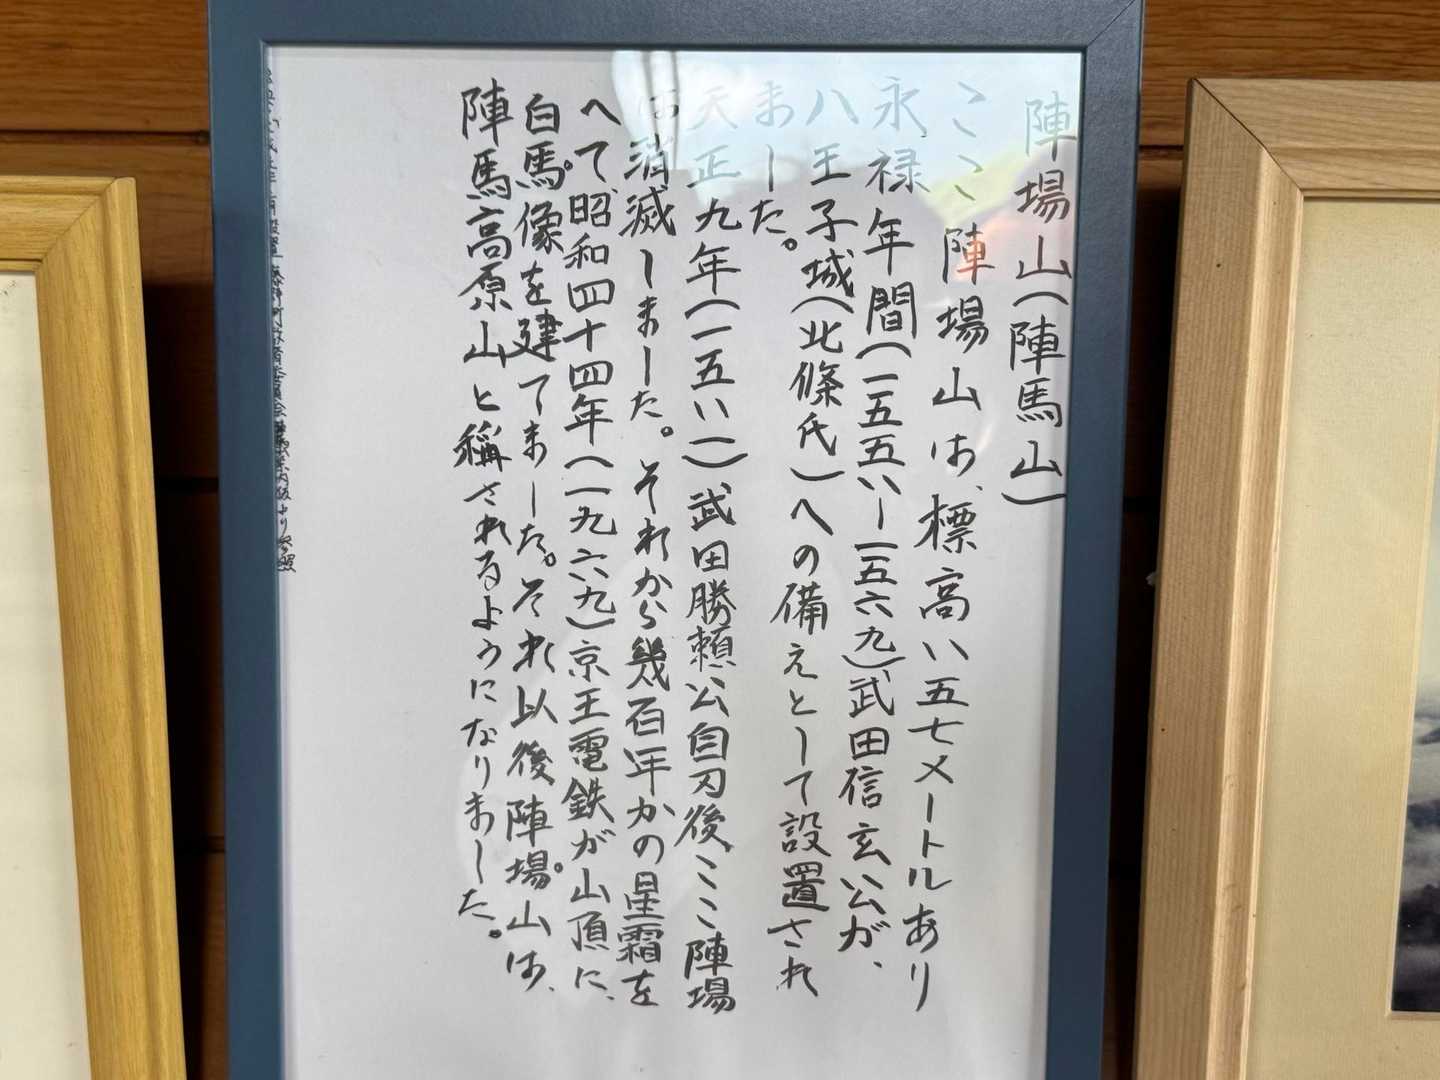 陣場山(陣馬山)
ここ陣場山は、標高八五七メートルあり
永禄年間(一五五八ー一五六九)武田信玄公が、
八王子城(北條氏)への備えとして設置され
ました。
天正九年(一五八一)武田勝頼公自刃後、ここ陣場
は消滅しました。それから幾百年かの星霜を
へて昭和四十四年(一九六九)京王電鉄が山頂に、
白馬像を建てました。それ以後陣場山は、
陣馬高原山と稱されるようになりました。
藤野町教育委員会 案内板より参照